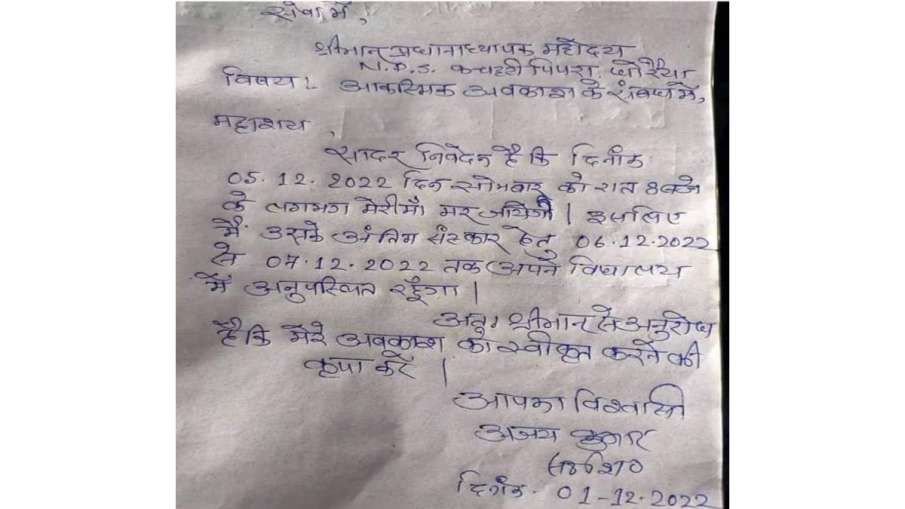 सेवा में,
श्रीमान प्रधानाध्यापक महोदय
N.P.S. कचहरी पिपरा, धोरैया
विषय:- आकस्मिक अवकाश के संबंध में,
महाशय,
सादर निवेदन है कि दिनांक
05.12.2022 दिन सोमवार को रात 8 बजे
के लगभग मेरी माँ मर जायेगी। इसलिए
मैं उसके अंतिम संस्कार हेतु 06.12.2022
से 07.12.2022 तक अपने विद्यालय
में अनुपस्थित रहूँगा।
अतः श्रीमान से अनुरोध
है कि मेरे अवकाश को स्वीकृत करने की
कृपा करें।
आपका विश्वासी
अजय कुमार
दिनांक- 01-12-2022